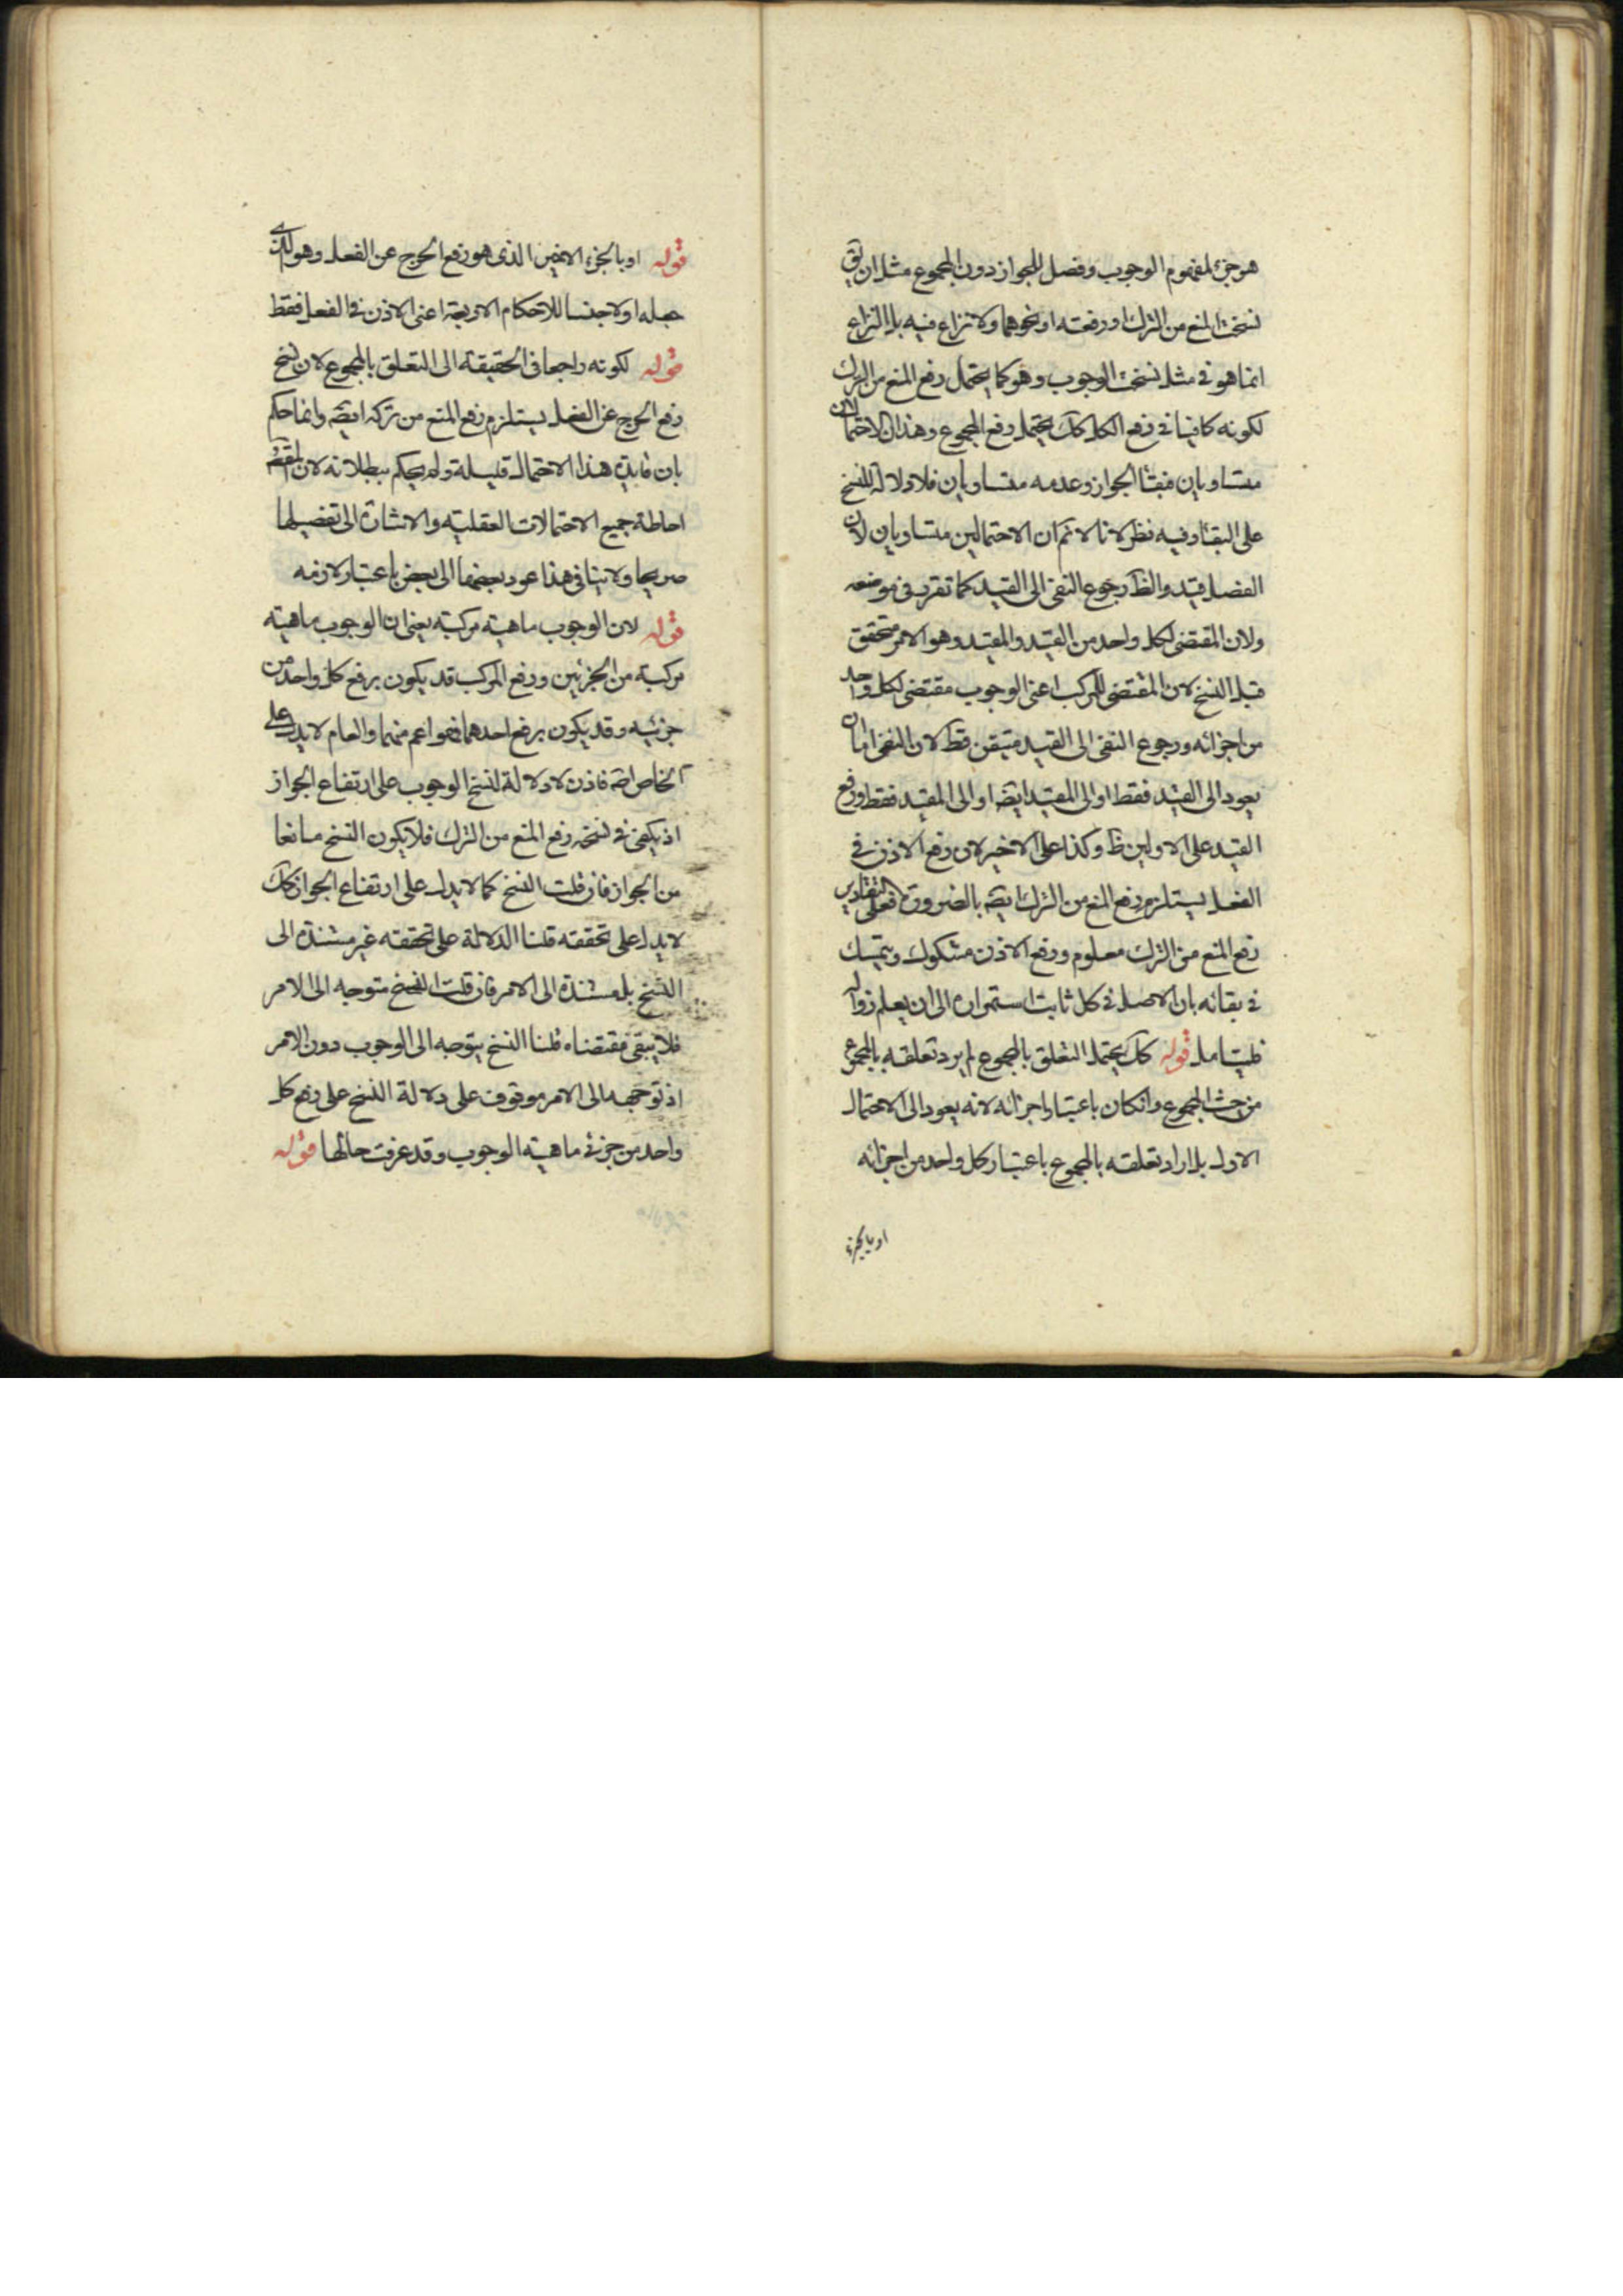 هو جزء لمفهوم الوجوب وفصل للجواز دون المجموع مثل ان يق
نسخت المنع من الترك او رفعته او نحوهما ولا نزاع فيه بل النزاع
انما هو في مثل نسخت الوجوب وهو كما يحتمل رفع المنع من الترك
لكونه كافيا في رفع الكل كك يحتمل رفع المجموع وهذان الاحتمالان
متساويان فبقاء الجواز وعدمه متساويان فلا دلالة للنسخ
على البقاء وفيه نظر لانا لا نم ان الاحتمالين متساويان لان
الفصل قيد والظ رجوع النفي الى القيد كما تقرر في موضعه
ولان المقتضى لكل واحد من القيد والمقيد وهو الامر متحقق
قبل النسخ لان المقتضى للمركب اعنى الوجوب مقتضى لكل واحد
من اجزائه ورجوع النفى الى القيد متيقن قط لان النفى اما ان
يعود الى القيد فقط او الى المقيد ايضا او الى المقيد فقط ورفع
القيد على الاولين ظ وكذا على الاخير لان رفع الاذن في
الفعل يستلزم رفع المنع من الترك ايضه بالضرورة فعلى التقادير
رفع المنع من الترك معلوم ورفع الاذن مشكوك ويتمسك
في بقائه بان الاصل في كل ثابت استمراره الى ان يعلم زواله
فليتامل قوله كك يحتمل التعلق بالمجموع لم يرد تعلقه بالمجموع
من حيث المجموع وانكان باعتبار اجزائه لانه يعود الى الاحتمال
الاول بل اراد تعلقه بالمجموع باعتبار كل واحد من اجزائه
او بالجزء
قوله او بالجزء الاخير الذى هو رفع الحرج عن الفعل وهو الذى
جعله اولا جنسا للاحكام الاربعة اعنى الاذن في الفعل فقط
قوله لكونه راجعا في الحقيقة الى التعلق بالمجموع لان نسخ
رفع الحرج عن الفعل يستلزم رفع المنع من تركه ايضه وانما حكم
بان فايدة هذا الاحتمال قليلة ولم يحكم ببطلانه لان المقصد
احاطة جميع الاحتمالات العقلية والاشارة الى تفصيلها
صريحا ولا ينافى هذا عود بعضها الى بعض باعتبار لازمه
قوله لان الوجوب ماهية مركبة يعنى ان الوجوب ماهية
مركبة من الجزئين ورفع المركب قد يكون برفع كل واحد من
جزئيه وقد يكون برفع احدهما فهو اعم منهما والعام لا يدل على
الخاص اصه فاذن لا دلالة لنسخ الوجوب على ارتفاع الجواز
اذ يكفى في نسخه رفع المنع من الترك فلا يكون النسخ مانعا
من الجواز فان قلت النسخ كما لا يدل على ارتفاع الجواز كك
لا يدل على تحققه قلنا الدلالة على تحققه غير مستندة الى
النسخ بل مستندة الى الامر فان قلت النسخ متوجه الى الامر
فلا يبقى مقتضاه قلنا النسخ يتوجه الى الوجوب دون الامر
اذ توجهه الى الامر موقوف على دلالة النسخ على رفع كل
واحد من جزئي ماهية الوجوب وقد عرفت حالها قوله